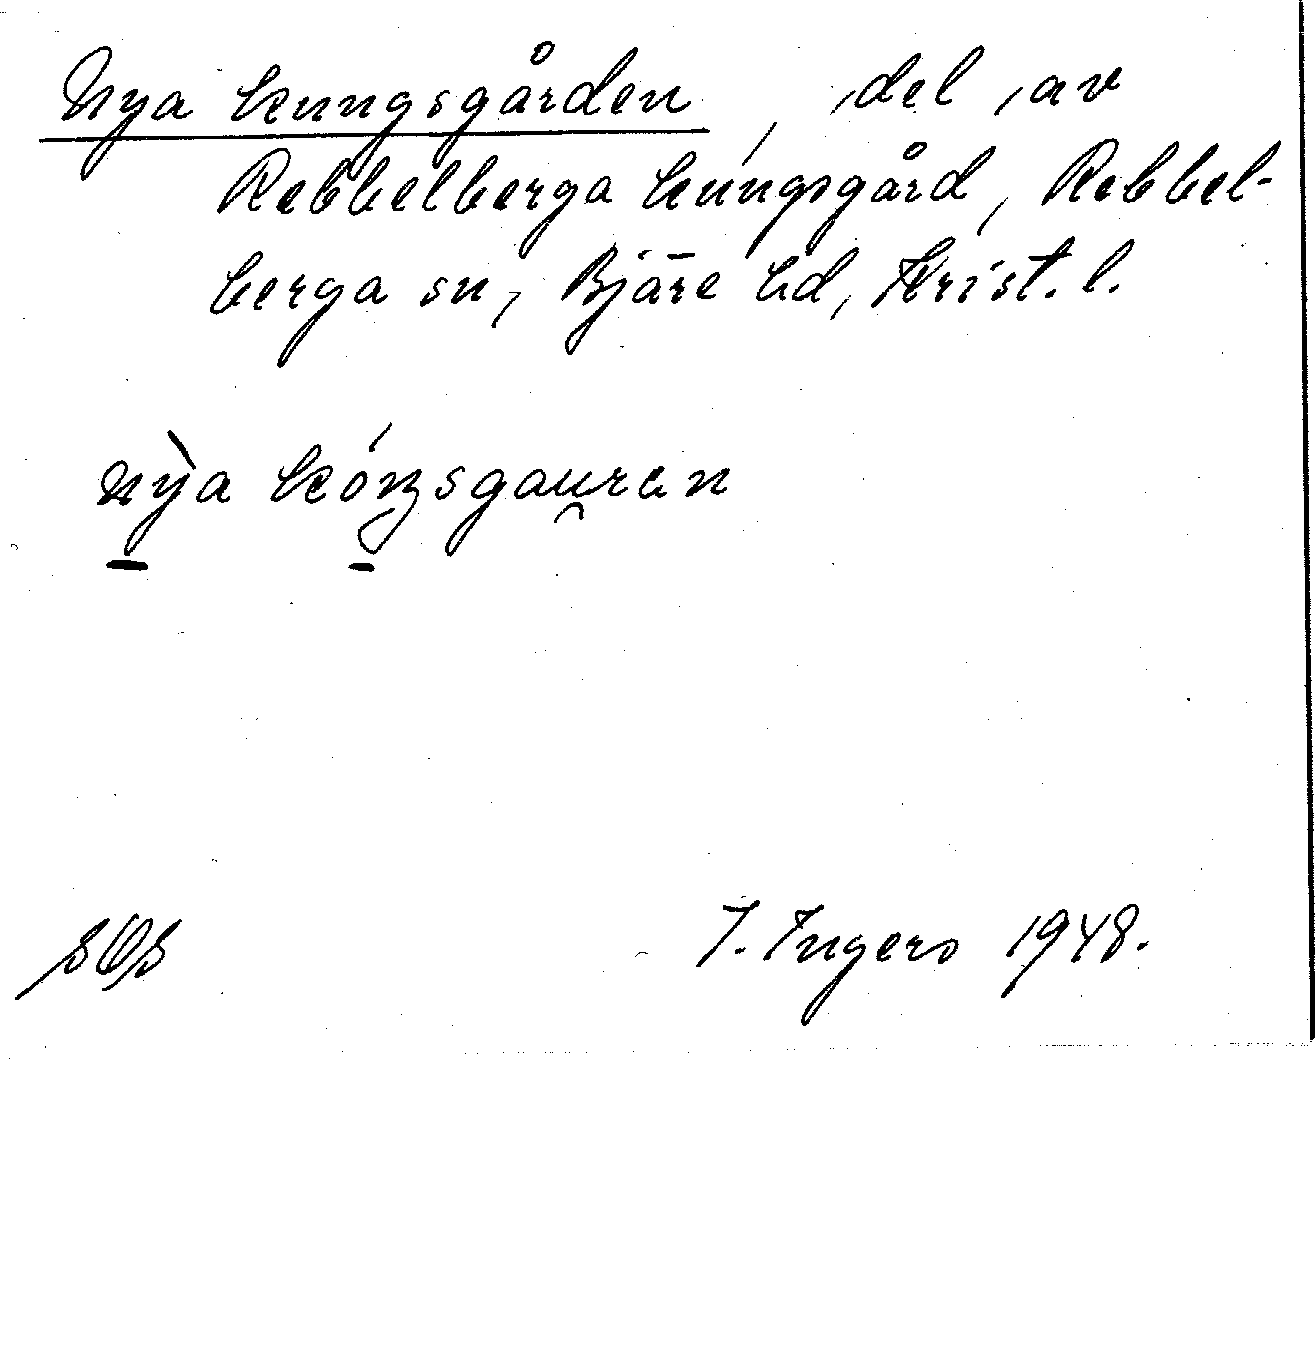 Nya Kungsgården, del av
Rebbelberga kungsgård, Rebbel-
berga sn, Bjäre hd, Krist. l.
nỳa kóŋsgau̯ran
I. Ingers 1948.